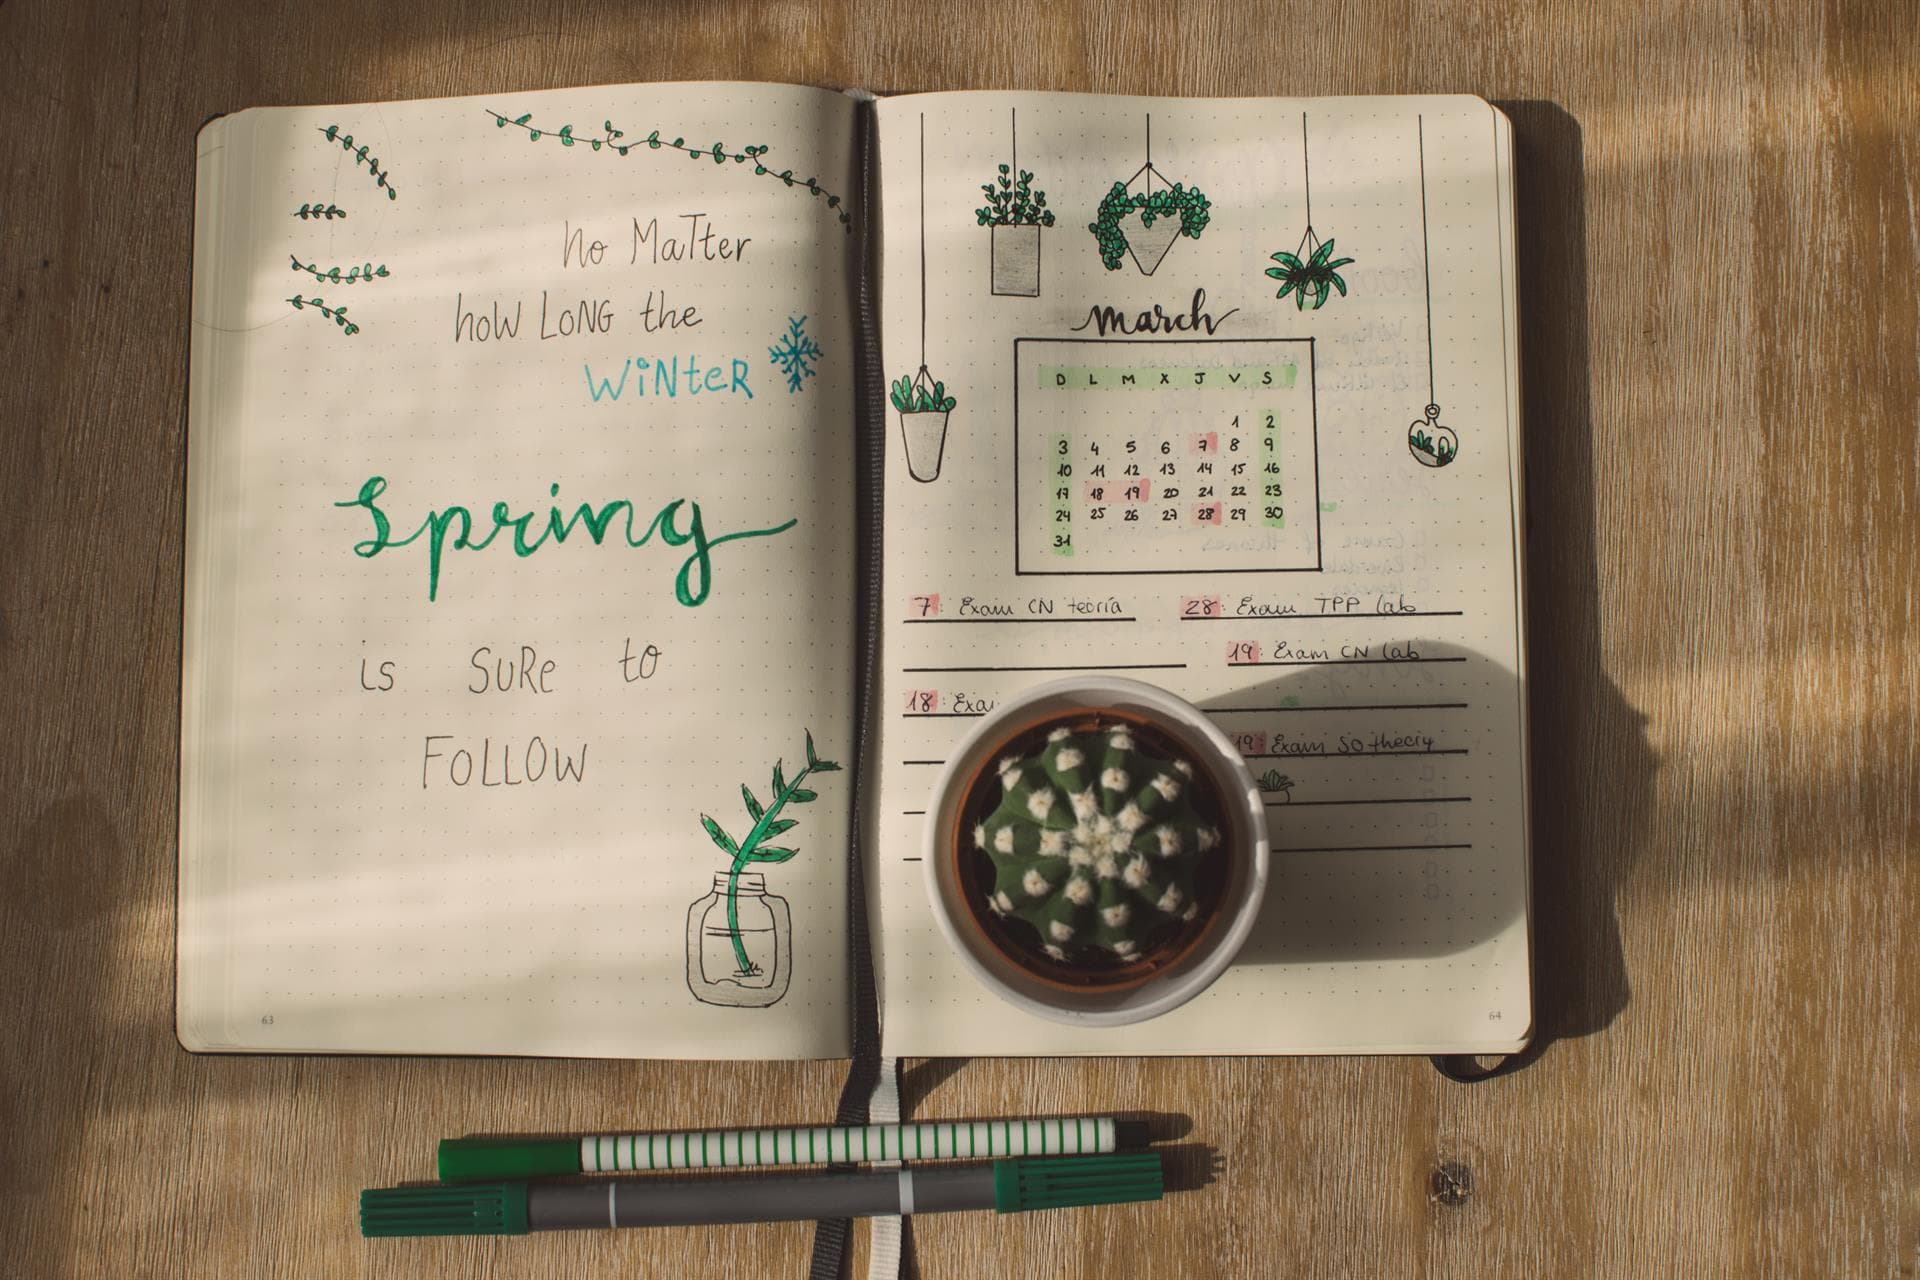 no Matter
how LONG the
WiNteR
Spring
is SuRe to
FOLLOW
63
march
D L M X J V S
1 2
3 4 5 6 7 8 9
10 11 12 13 14 15 16
17 18 19 20 21 22 23
24 25 26 27 28 29 30
31
7: Exam CN teoría
28: Exam TPP lab
19: Exam CN lab
18: Exa
19: Exam SO theory
64